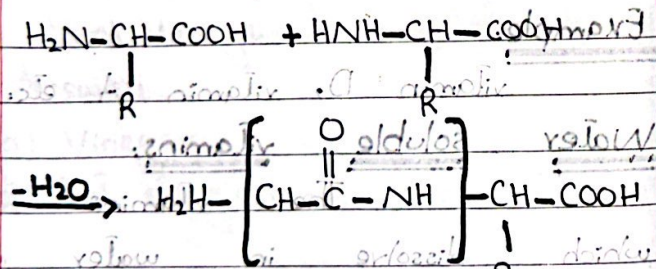 H₂N-CH-COOH + HNH-CH-COOH
R R
O
-H2O → H₂H- [CH-C-NH] -CH-COOH